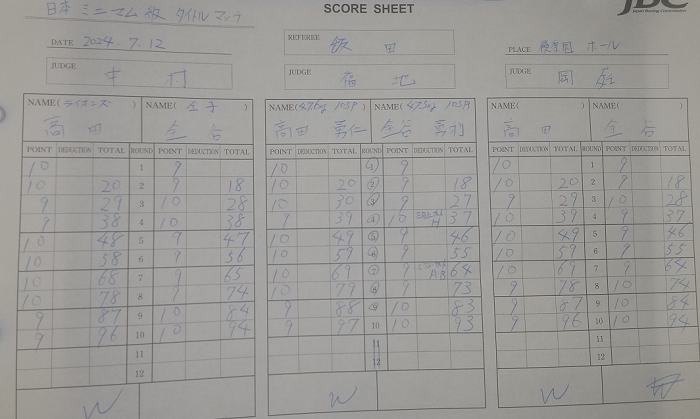 日本 ミニマム級 タイトルマッチ
SCORE SHEET
JBC
DATE 2024.7.12
REFEREE 飯田
PLACE 後楽園 ホール
JUDGE 中村
JUDGE 福地
JUDGE 岡庭
NAME(ライオンズ) NAME(金子)
高田
POINT DEDUCTION TOTAL ROUND POINT DEDUCTION TOTAL
10 1 9
10 20 2 9 18
9 29 3 10 28
9 38 4 10 38
10 48 5 9 47
10 58 6 9 56
10 68 7 9 65
10 78 8 9 74
9 87 9 10 84
9 96 10 10 94
11
12
W
NAME(47.6kg 105P) NAME(47.5kg 105P)
高田 勇仁 勇利
POINT DEDUCTION TOTAL ROUND POINT DEDUCTION TOTAL
10 1 9
10 20 2 9 18
10 30 3 9 27
9 39 4 10 37
10 49 5 9 46
10 59 6 9 55
10 69 7 9 64
10 79 8 9 73
9 88 9 10 83
9 97 10 10 93
11
12
W
NAME( ) NAME( )
高田
POINT DEDUCTION TOTAL ROUND POINT DEDUCTION TOTAL
10 1 9
10 20 2 9 18
9 29 3 10 28
10 39 4 9 37
10 49 5 9 46
10 59 6 9 55
10 69 7 9 64
9 78 8 10 74
9 87 9 10 84
9 96 10 10 94
11
12
W